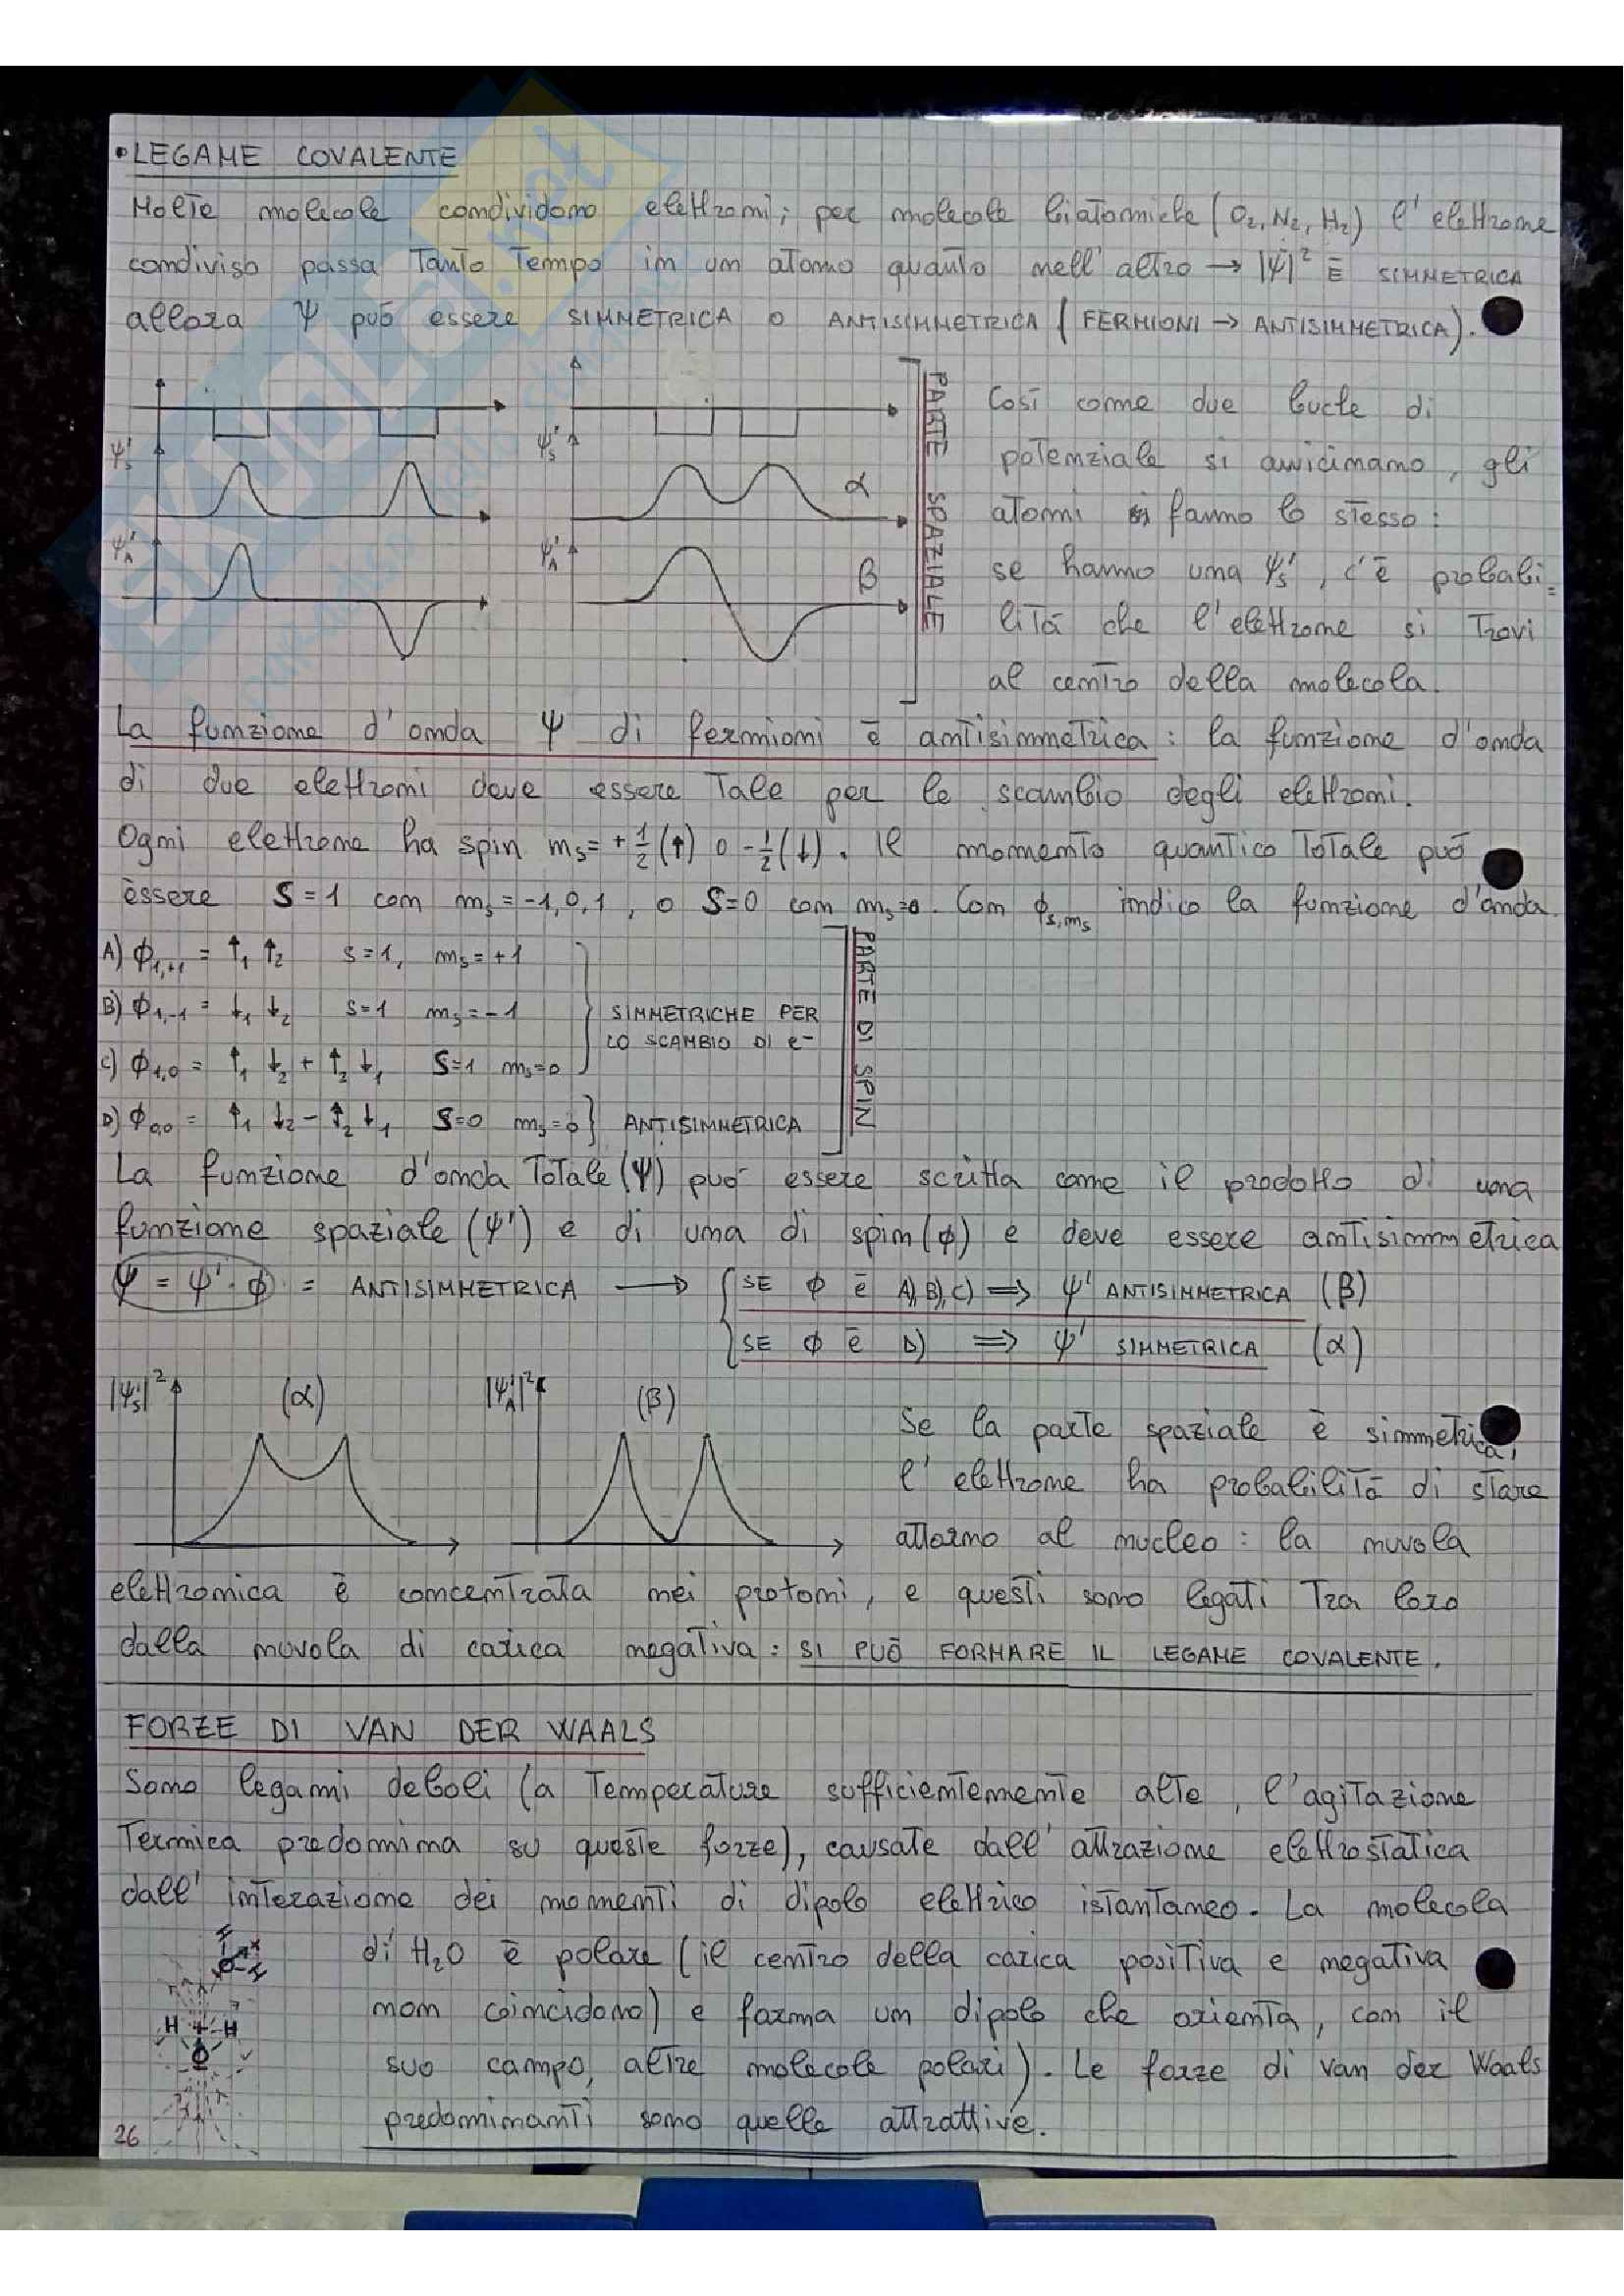 • LEGAME COVALENTE
Molte molecole condividono elettroni; per molecole biatomiche (O₂, N₂, H₂) l'elettrone
condiviso passa tanto tempo in un atomo quanto nell'altro → |Ψ|² È SIMMETRICA
allora Ψ può essere SIMMETRICA O ANTISIMMETRICA (FERMIONI → ANTISIMMETRICA).
Ψ's
Ψ'A
Ψ's
α
Ψ'A
β
PARTE SPAZIALE
Così come due buche di
potenziale si avvicinano, gli
atomi fanno lo stesso:
se hanno una Ψ's, c'è probabi=
lità che l'elettrone si trovi
al centro della molecola.
La funzione d'onda Ψ di fermioni è antisimmetrica: la funzione d'onda
di due elettroni deve essere tale per lo scambio degli elettroni.
Ogni elettrone ha spin ms = +1/2 (↑) o -1/2 (↓). Il momento quantico totale può
essere S=1 con ms = -1, 0, 1, o S=0 con ms=0. Con ϕs,ms indico la funzione d'onda.
A) ϕ1,+1 = ↑₁ ↑₂ s=1, ms=+1
B) ϕ1,-1 = ↓₁ ↓₂ s=1 ms=-1
SIMMETRICHE PER
LO SCAMBIO DI e-
C) ϕ1,0 = ↑₁ ↓₂ + ↑₂ ↓₁ S=1 ms=0
D) ϕ0,0 = ↑₁ ↓₂ - ↑₂ ↓₁ S=0 ms=0 } ANTISIMMETRICA
PARTE DI SPIN
La funzione d'onda totale (Ψ) può essere scritta come il prodotto di una
funzione spaziale (Ψ') e di una di spin (ϕ) e deve essere antisimmetrica
Ψ = Ψ' · ϕ = ANTISIMMETRICA → { SE ϕ è A), B), C) ⇒ Ψ' ANTISIMMETRICA (β)
SE ϕ è D) ⇒ Ψ' SIMMETRICA (α)
|Ψ's|² (α) |Ψ'A|² (β)
Se la parte spaziale è simmetrica,
l'elettrone ha probabilità di stare
attorno al nucleo: la nuvola
elettronica è concentrata nei protoni, e questi sono legati tra loro
dalla nuvola di carica negativa: SI PUÒ FORMARE IL LEGAME COVALENTE.
FORZE DI VAN DER WAALS
Sono legami deboli (a temperature sufficientemente alte, l'agitazione
termica predomina su queste forze), causate dall'attrazione elettrostatica
dall'interazione dei momenti di dipolo elettrico istantaneo. La molecola
di H₂O è polare (il centro della carica positiva e negativa
non coincidono) e forma un dipolo che orienta, con il
suo campo, altre molecole polari). Le forze di van der Waals
predominanti sono quelle attrattive.
H + H
O
26
SKUOLA.net